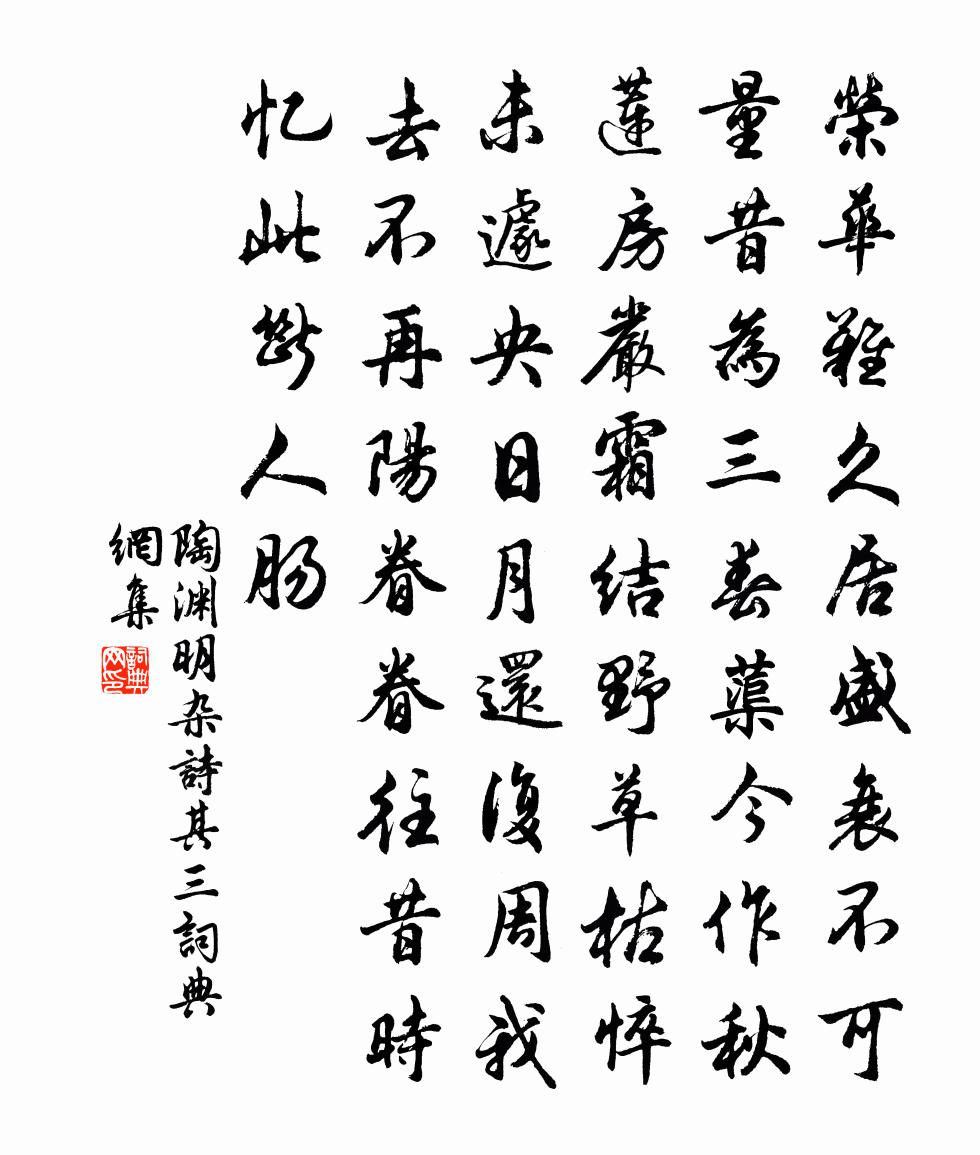 榮華難久居盛衰不可
量昔為三春蕖今作秋
蓮房嚴霜結野草枯悴
未遽央日月還復周我
去不再陽眷眷往昔時
忆此斷人肠
陶渊明杂詩其三詞典
網集
詞典
网印